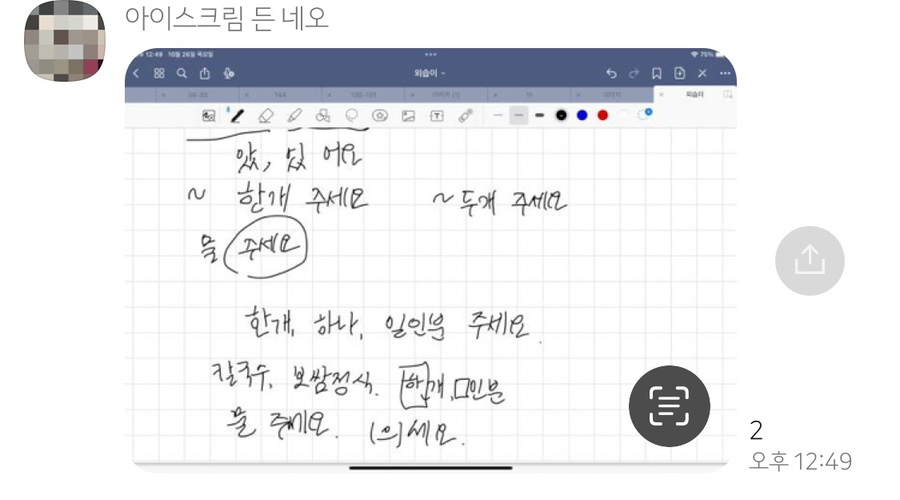 아이스크림 든 네오
12:49 10월 26일 목요일
75%
외습이
34-35 144 130-131 11 외습이
았, 었 어요
~ 한개 주세요 ~ 두개 주세요
물 주세요
한개, 하나, 일인분 주세요.
칼국수, 보쌈정식. 한개, □인분
물 주세요. (으)세요.
2
오후 12:49